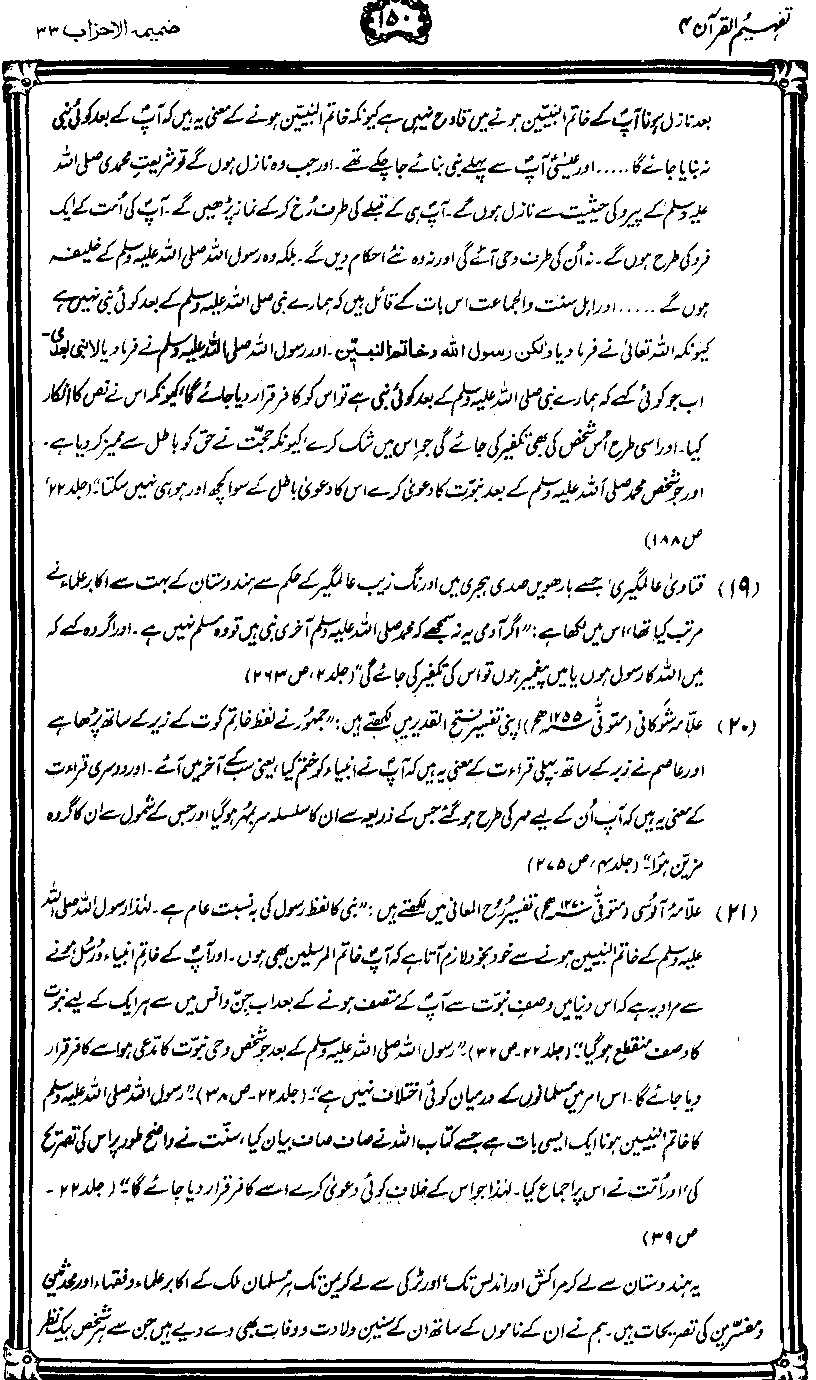 تفہیم القرآن ۴
۱۵۰
ضمیمہ الاحزاب ۳۳
بعد نازل ہونا آپؐ کے خاتم النبیین ہونے میں قادح نہیں ہے کیونکہ خاتم النبیین ہونے کے معنی یہ ہیں کہ آپؐ کے بعد کوئی نبی
نہ بنایا جائے گا ..... اور عیسیٰؑ آپؐ سے پہلے نبی بنائے جا چکے تھے۔ اور جب وہ نازل ہوں گے تو شریعتِ محمدی صلی اللہ
علیہ وسلم کے پیرو کی حیثیت سے نازل ہوں گے۔ آپؐ ہی کے قبلے کی طرف رُخ کرکے نماز پڑھیں گے۔ آپؐ کی اُمت کے ایک
فرد کی طرح ہوں گے۔ نہ اُن کی طرف وحی آئے گی اور نہ وہ نئے احکام دیں گے۔ بلکہ وہ رسول اللہ صلی اللہ علیہ وسلم کے خلیفہ
ہوں گے ..... اور اہل سنت والجماعت اس بات کے قائل ہیں کہ ہمارے نبی صلی اللہ علیہ وسلم کے بعد کوئی نبی نہیں ہے
کیونکہ اللہ تعالیٰ نے فرما دیا ولکن رسول اللہ وخاتم النبیین۔ اور رسول اللہ صلی اللہ علیہ وسلم نے فرما دیا لا نبی بعدی۔
اب جو کوئی کہے کہ ہمارے نبی صلی اللہ علیہ وسلم کے بعد کوئی نبی ہے تو اس کو کافر قرار دیا جائے گا، کیونکہ اس نے نص کا انکار
کیا۔ اور اسی طرح اُس شخص کی بھی تکفیر کی جائے گی جو اس میں شک کرے، کیونکہ حجت نے حق کو باطل سے ممیز کر دیا ہے۔
اور جو شخص محمد صلی اللہ علیہ وسلم کے بعد نبوت کا دعویٰ کرے اس کا دعویٰ باطل کے سوا کچھ اور ہو ہی نہیں سکتا“ (جلد ۲۲،
ص ۱۸۸)
(۱۹) فتاویٰ عالمگیری، جسے بارھویں صدی ہجری میں اورنگ زیب عالمگیر کے حکم سے ہندوستان کے بہت سے اکابر علماء نے
مرتب کیا تھا، اس میں لکھا ہے: ”اگر آدمی یہ نہ سمجھے کہ محمد صلی اللہ علیہ وسلم آخری نبی ہیں تو وہ مسلم نہیں ہے۔ اور اگر وہ کہے کہ
میں اللہ کا رسول ہوں یا میں پیغمبر ہوں تو اس کی تکفیر کی جائے گی“ (جلد ۲، ص ۲۶۳)
(۲۰) علامہ شوکانی (متوفیٰ ۱۲۵۵ھ) اپنی تفسیر فتح القدیر میں لکھتے ہیں: ”جمہور نے لفظ خاتم کو ت کے زیر کے ساتھ پڑھا ہے
اور عاصم نے زبر کے ساتھ۔ پہلی قراءت کے معنی یہ ہیں کہ آپؐ نے انبیاء کو ختم کیا، یعنی سب کے آخر میں آئے۔ اور دوسری قراءت
کے معنی یہ ہیں کہ آپؐ اُن کے لیے مہر کی طرح ہو گئے جس کے ذریعہ سے ان کا سلسلہ سربمہر ہو گیا اور جس کے شمول سے ان کا گروہ
مزین ہوا“ (جلد ۴، ص ۲۷۵)
(۲۱) علامہ آلوسی (متوفیٰ ۱۲۷۰ھ) تفسیر رُوح المعانی میں لکھتے ہیں: ”نبی کا لفظ رسول کی بہ نسبت عام ہے۔ لہٰذا رسول اللہ صلی اللہ
علیہ وسلم کے خاتم النبیین ہونے سے خود بخود لازم آتا ہے کہ آپؐ خاتم المرسلین بھی ہوں۔ اور آپؐ کے خاتم انبیاء و رُسل ہونے
سے مراد یہ ہے کہ اس دنیا میں وصفِ نبوت سے آپؐ کے متصف ہونے کے بعد اب جن و انس میں سے ہر ایک کے لیے نبوت
کا وصف منقطع ہو گیا“ (جلد ۲۲۔ ص ۳۲) ”رسول اللہ صلی اللہ علیہ وسلم کے بعد جو شخص وحیِ نبوت کا مدعی ہو اسے کافر قرار
دیا جائے گا۔ اس امر میں مسلمانوں کے درمیان کوئی اختلاف نہیں ہے“۔ (جلد ۲۲۔ ص ۳۸) ”رسول اللہ صلی اللہ علیہ وسلم
کا خاتم النبیین ہونا ایک ایسی بات ہے جسے کتاب اللہ نے صاف صاف بیان کیا، سنت نے واضح طور پر اس کی تصریح
کی، اور اُمت نے اس پر اجماع کیا۔ لہٰذا جو اس کے خلاف کوئی دعویٰ کرے اسے کافر قرار دیا جائے گا“ (جلد ۲۲۔
ص ۳۹)
یہ ہندوستان سے لے کر مراکش اور اندلس تک، اور ٹرکی سے لے کر یمن تک ہر مسلمان ملک کے اکابر علماء و فقہاء اور محدثین
و مفسرین کی تصریحات ہیں۔ ہم نے ان کے ناموں کے ساتھ ان کے سنینِ ولادت و وفات بھی دے دیے ہیں جن سے ہر شخص بیک نظر